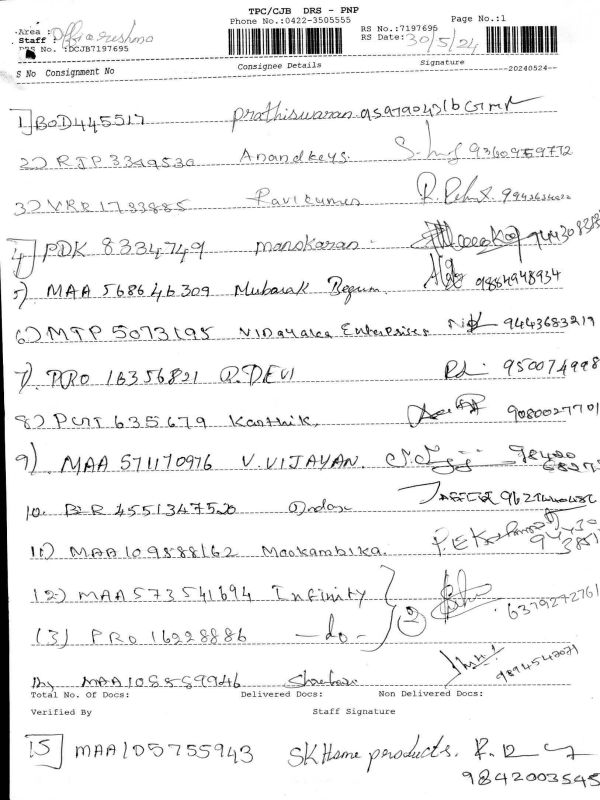 TPC/CJB DRS - PNP
Phone No.:0422-3505555
Page No.:1
Area :
Staff :
RS No.:7197695
RS Date: 30/5/24
DRS No. :DCJB7197695
S No Consignment No Consignee Details Signature
--20240524--
1) BOD445517 Prathiswaran
2) RJP3349530 Anandkeys. 9360959772
3) VRR1733885 Ravikumar
4) PDK 8334749 manokaran.
5) MAA 568646309 Mubarak Begum. 9884948934
6) MTP 5073195 Vinayaka Enterprises 9443683219
7) PRO 16356821 R.DEVI 950074998
8) PUT 635679 Karthik. 9080027701
9) MAA 571170976 V.VIJAYAN.
10. BLR 4551347520
11) MAA109588162 Mookambika.
12) MAA573541694 Infinity 2
6379272761
13) PRO 16228886 -do-
14) MAA108559946
9894542071
Total No. Of Docs: Delivered Docs: Non Delivered Docs:
Verified By Staff Signature
15 MAA105755943 SK Home products.
9842003545